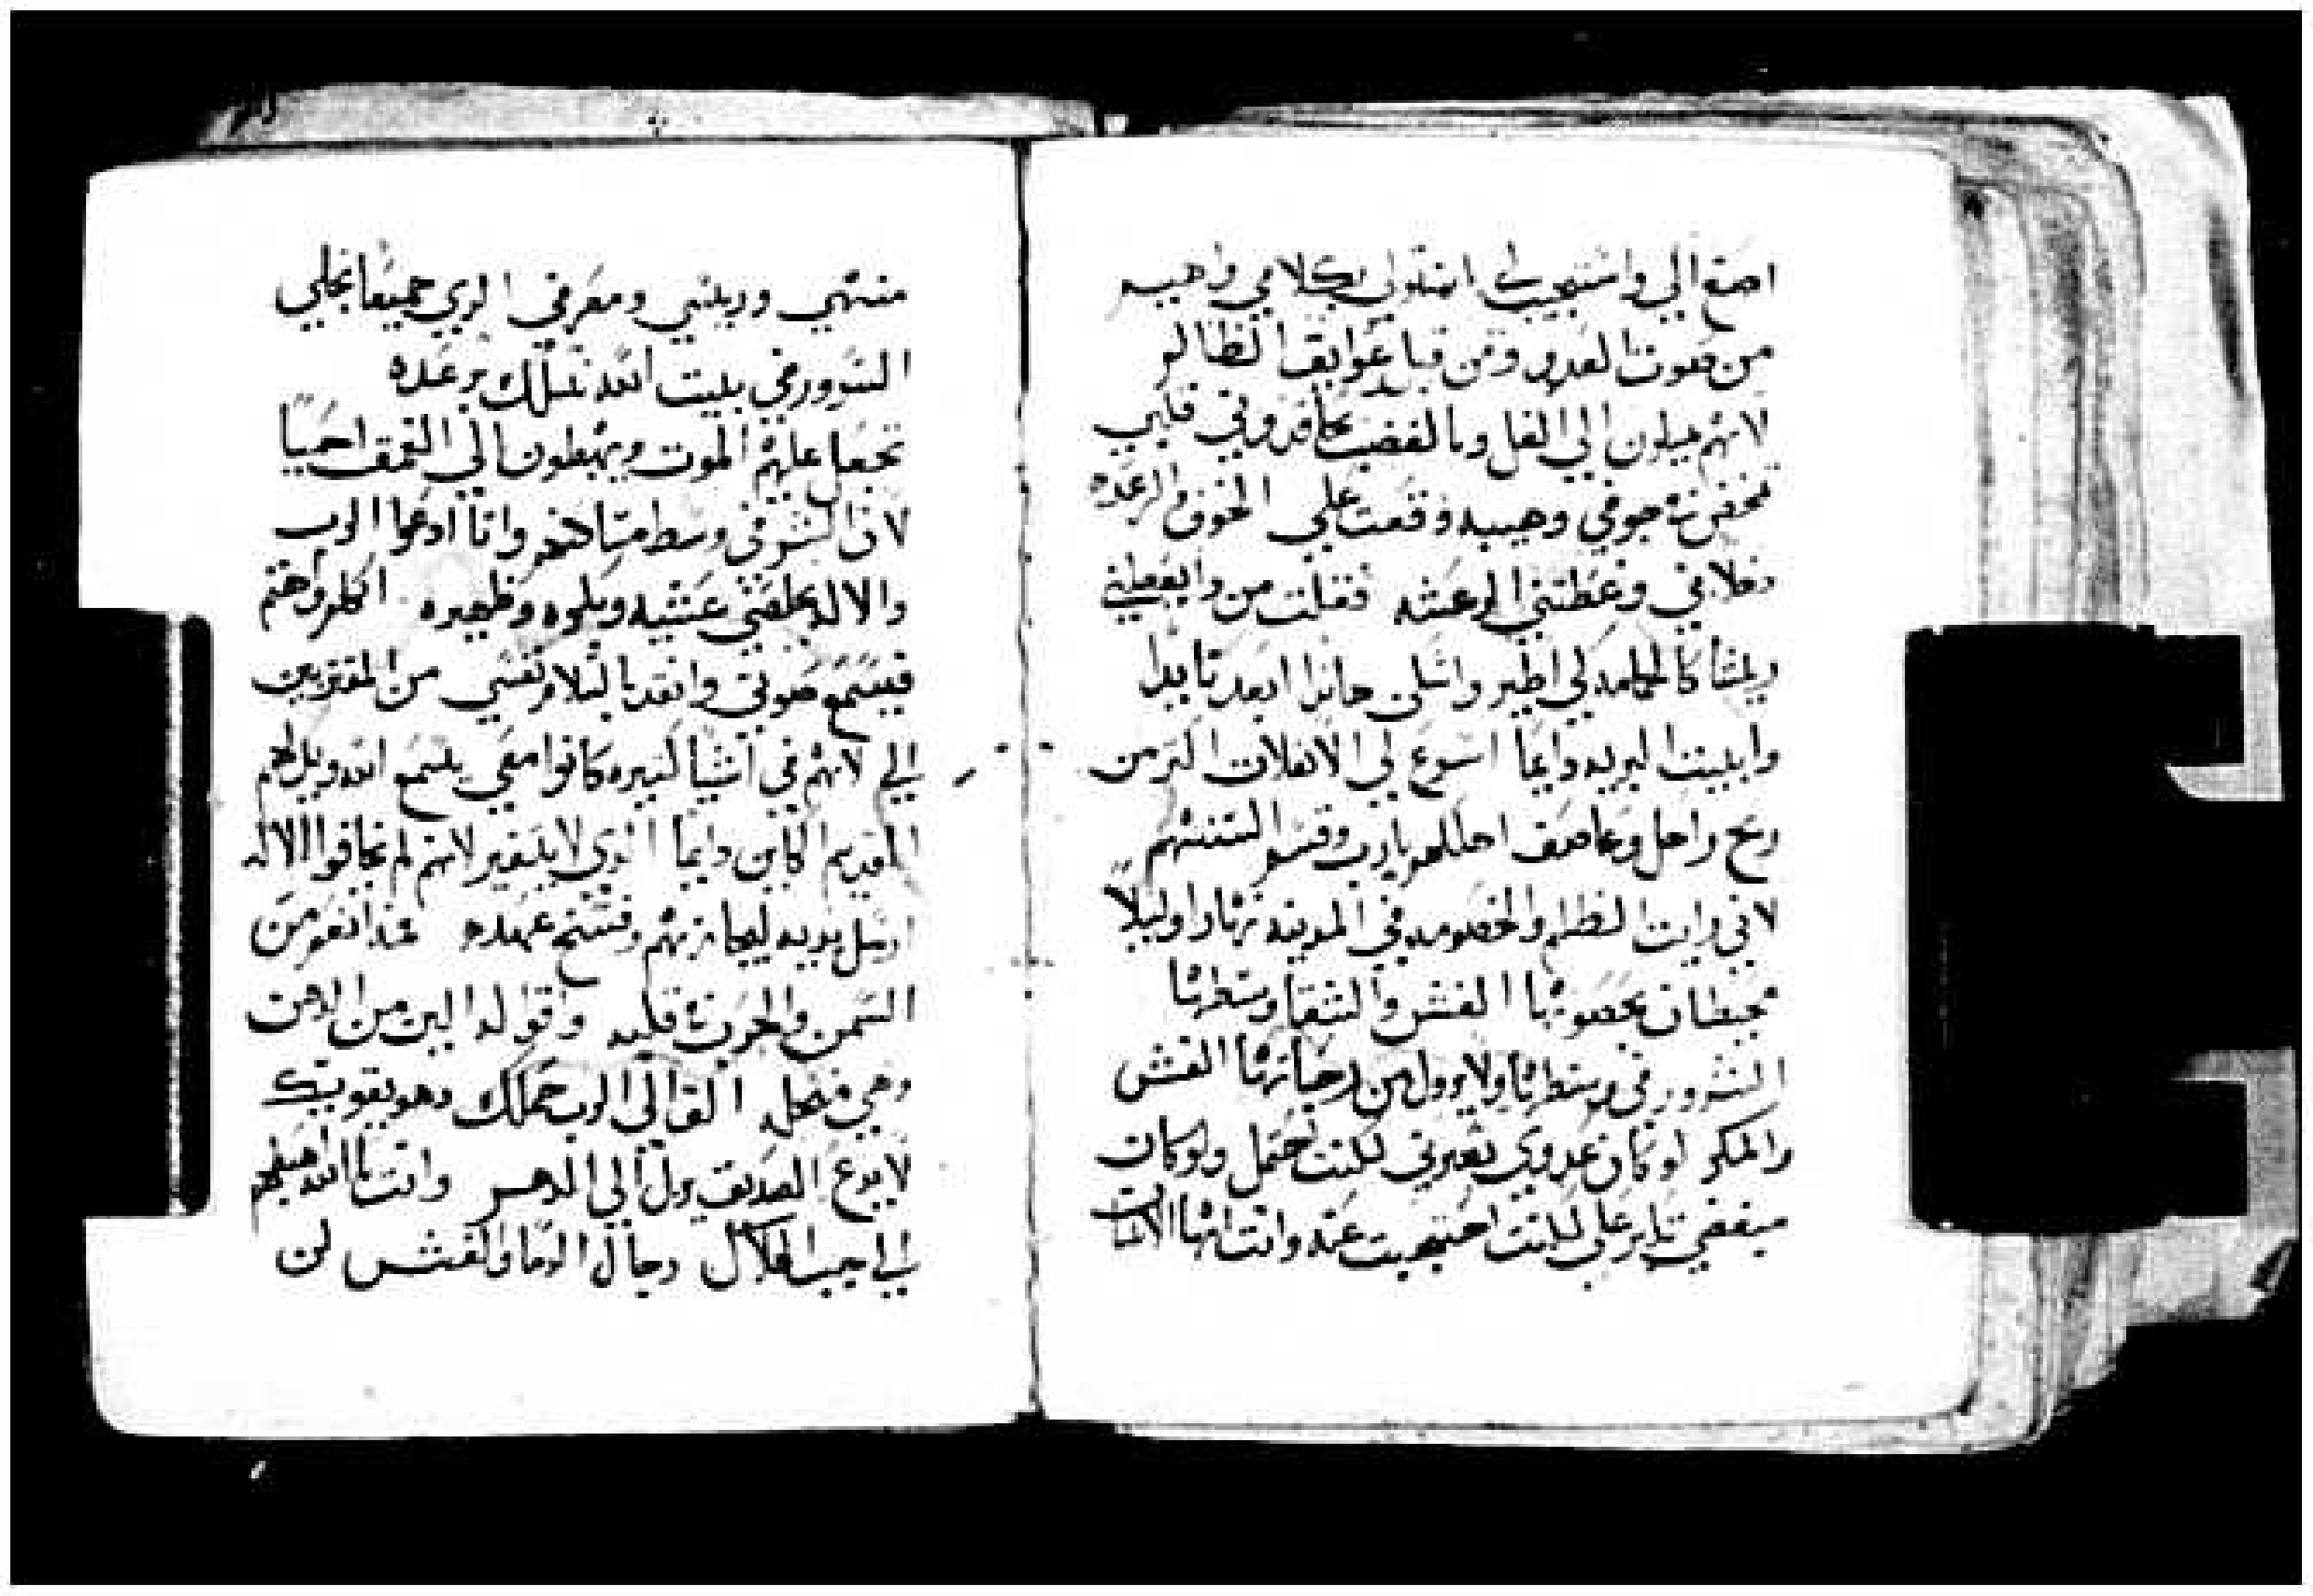 اصغ الي واستجيب لي ابتدلي بكلامي واهيب
من صوت العدو ومن قبل عوايق الظالم
لانهم ميلون الي الغل وبالغضب حقدوني قلبي
تمخض في جوفي وهيبه وقعت علي الخوف والرعده
دخلا في وغطتني الرعشه فقلت من وا يعطيني
ريشا كالحمامه لكي اطير واسلي هاندا ابعد تابدا
وابيت البريه دايما اسرع لي الانفلات اكتر من
ريح راحل وعاصف احللهم يارب وقسم السنتهم
لاني رايت الظلم والخصومه في المدينة نهارا وليلا
محيطان بحصونها الغش والشقا وسطها
الشرور في وسطها ولا يزول من رحباتها الغش
والمكر لو كان عدوي يعيرني لكنت احتمل ولو كان
مبغضي تاير علي لكنت احتجبت عنه وانت ايها الانسان
منتهي وريسي ومعرفي الدي جميعا نحلي
السرور في بيت الله نسلك برعده
تجعل عليهم الموت ويهبطون الي العمق احيا
لان الشر في وسط مساكنهم وانا ادعوا الرب
والالاه يخلصني عشيه وبكره وظهيره اتكلم واهتم
فيسمع صوتي وانقد بالسلام نفسي من المقتربين
الي لانهم في اشيا كتيره كانوا معي يسمع الله ويذلهم
القديم الكاين دايما الدي لا يتغير لانهم لم يخافوا الالاه
ارسل يديه ليجازيهم وفسخ عهده عند انعم من
السمن والحرب في قلبه واقواله الين من الدهن
وهي فصل القا الي الرب حملك وهو يقويك
لا يدع الصديق يزل الي الدهر وانت يا الله هبطهم
الي جب الهلاك رجال الدما والغش لن